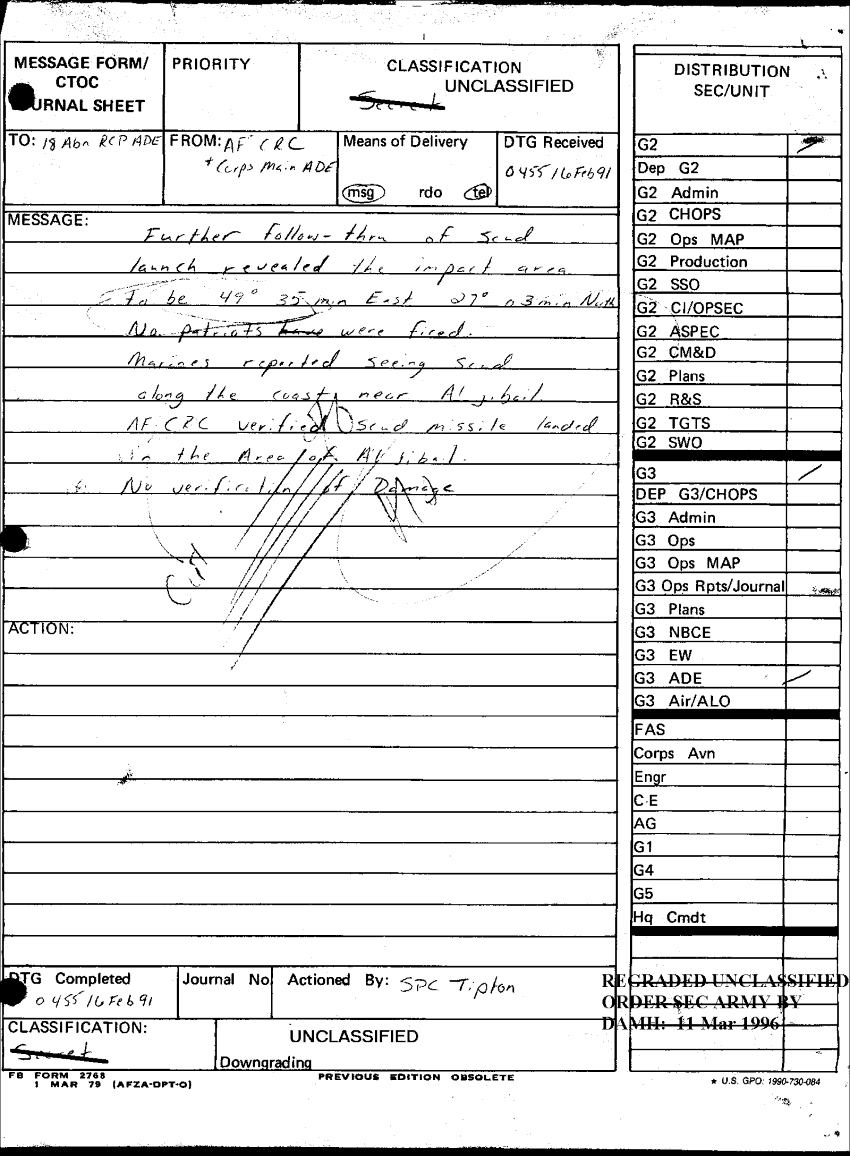 MESSAGE FORM/
CTOC
URNAL SHEET
PRIORITY
CLASSIFICATION
UNCLASSIFIED
Secret
DISTRIBUTION
SEC/UNIT
TO: 18 Abn RCP ADE
FROM: AF CRC
+ Corps Main ADE
Means of Delivery
msg rdo tel
DTG Received
0455 16 Feb 91
MESSAGE:
Further follow-thru of Scud
launch revealed the impact area
to be 49° 35 min East 27° 03 min North
No patriots have were fired.
Marines reported seeing Scud
along the coast near Al jibail
AF CRC verified Scud missile landed
in the Area of Al Jibail.
No verification of Damage
ACTION:
G2
Dep G2
G2 Admin
G2 CHOPS
G2 Ops MAP
G2 Production
G2 SSO
G2 CI/OPSEC
G2 ASPEC
G2 CM&D
G2 Plans
G2 R&S
G2 TGTS
G2 SWO
G3
DEP G3/CHOPS
G3 Admin
G3 Ops
G3 Ops MAP
G3 Ops Rpts/Journal
G3 Plans
G3 NBCE
G3 EW
G3 ADE
G3 Air/ALO
FAS
Corps Avn
Engr
C-E
AG
G1
G4
G5
Hq Cmdt
DTG Completed
0455 16 Feb 91
Journal No
Actioned By: SPC Tipton
REGRADED UNCLASSIFIED
ORDER SEC ARMY BY
DAMH: 11 Mar 1996
CLASSIFICATION:
Secret
UNCLASSIFIED
Downgrading
FB FORM 2768
1 MAR 79 (AFZA-DPT-O)
PREVIOUS EDITION OBSOLETE
★ U.S. GPO: 1990-730-084